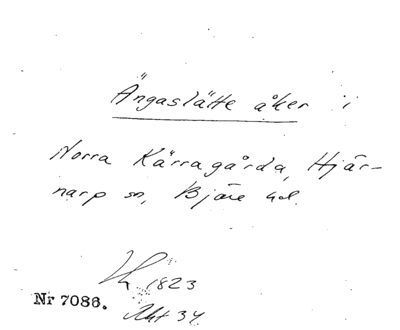 Ängaslätte åker i
Norra Kärragårda, Hjär-
narp sn, Bjäre hd.
1823
Nr 7086.
Akt 34